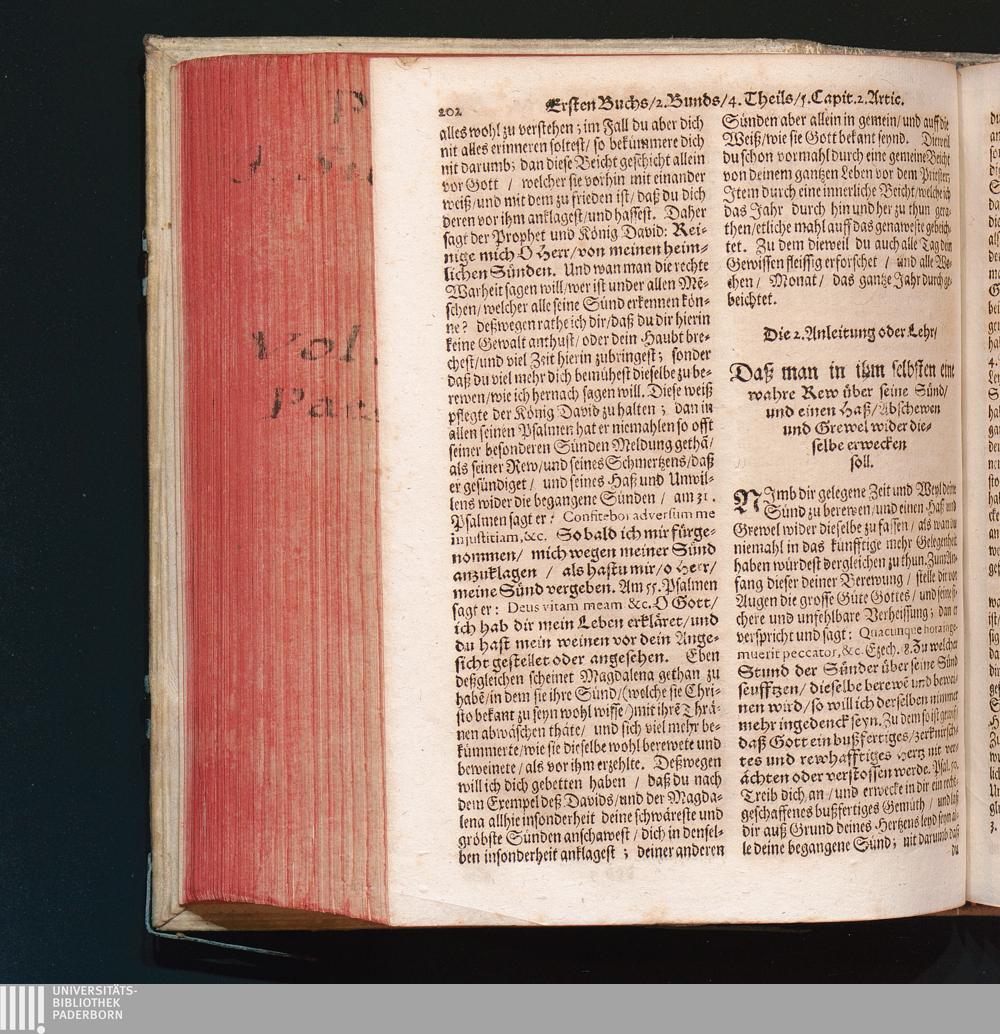 202
Ersten Buchs/2. Bunds/4. Theils/5. Capit. 2. Artic.
alles wohl zu verstehen; im Fall du aber dich
nit alles erinneren soltest/ so bekümmere dich
nit darumb; dan diese Beicht geschicht allein
vor Gott / welcher sie vorhin mit einander
weiß/und mit dem zu frieden ist/ daß du dich
deren vor ihm anklagest/und hassest. Daher
sagt der Prophet und König David: Rei-
nige mich O Herr/von meinen heim-
lichen Sünden. Und wan man die rechte
Warheit sagen will/wer ist under allen Mē-
schen/welcher alle seine Sünd erkennen kön-
ne? deßwegen rathe ich dir/daß du dir hierin
keine Gewalt anthust/ oder dein Haubt bre-
chest/und viel Zeit hierin zubringest; sonder
daß du viel mehr dich bemühest dieselbe zu be-
rewen/wie ich hernach sagen will. Diese weiß
pflegte der König David zu halten; dan in
allen seinen Psalmen hat er niemahlen so offt
seiner besonderen Sünden Meldung gethā/
als seiner Rew/und seines Schmertzens/daß
er gesündiget/ und seines Haß und Unwil-
lens wider die begangene Sünden / am 31.
Psalmen sagt er: Confitebor adversum me
injustitiam,&c. So bald ich mir fürge-
nommen/ mich wegen meiner Sünd
anzuklagen / als hastu mir/o Herr/
meine Sünd vergeben. Am 55. Psalmen
sagt er: Deus vitam meam &c. O Gott/
ich hab dir mein Leben erkläret/und
du hast mein weinen vor dein Ange-
sicht gestellet oder angesehen. Eben
deßgleichen scheinet Magdalena gethan zu
habē/in dem sie ihre Sünd/(welche sie Chri-
sto bekant zu seyn wohl wisse/) mit ihrē Thrä-
nen abwäschen thäte/ und sich viel mehr be-
kümmerte/wie sie dieselbe wohl berewete und
beweinete/als vor ihm erzehlte. Deßwegen
will ich dich gebetten haben / daß du nach
dem Exempel deß Davids/und der Magda-
lena allhie insonderheit deine schwäreste und
gröbste Sünden anschawest/dich in densel-
ben insonderheit anklagest; deiner anderen
Sünden aber allein in gemein/und auff die
Weiß/wie sie Gott bekant seynd. Dieweil
du schon vormahl durch eine gemeine Beicht
von deinem gantzen Leben vor dem Priester;
Item durch eine innerliche Beicht/welche ich
das Jahr durch hin und her zu thun gera-
then/etliche mahl auff das genaweste gebeich-
tet. Zu dem dieweil du auch alle Tag dein
Gewissen fleissig erforschet / und alle Wo-
chen/ Monat/ das gantze Jahr durch ge-
beichtet.
Die 2. Anleitung oder Lehr/
Daß man in ihm selbsten eine
wahre Rew über seine Sünd/
und einen Haß/Abschewen
und Grewel wider die-
selbe erwecken
soll.
NImb dir gelegene Zeit und Weyl deine
Sünd zu berewen/und einen Haß und
Grewel wider dieselbe zu fassen / als wan du
niemahl in das künfftige mehr Gelegenheit
haben würdest dergleichen zu thun. Zum An-
fang dieser deiner Berewung / stelle dir vor
Augen die grosse Güte Gottes/ und seine si-
chere und unfehlbare Verheissung; dan er
verspricht und sagt: Quacunque hora inge-
muerit peccator,&c. Ezech. 8. Zu welcher
Stund der Sünder über seine Sünd
seufftzen/ dieselbe berewē und bewei-
nen wird/so will ich derselben nimmer
mehr ingedenck seyn. Zu dem so ist gewiß/
daß Gott ein bußfertiges/zerknirsch-
tes und rewhafftiges Hertz nit ver-
ächten oder verstossen werde. Psal. 50.
Treib dich an/und erwecke in dir ein recht-
geschaffenes bußfertiges Gemüth / und laß
dir auß Grund deines Hertzens leyd seyn al-
le deine begangene Sünd; nit darumb daß
du
Vol.
UNIVERSITÄTS-
BIBLIOTHEK
PADERBORN